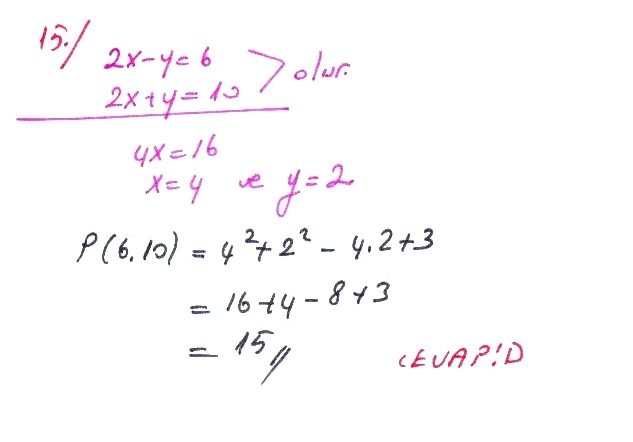 15./
2x-y=6
2x+y=10 > olur.
4x=16
x=4 ve y=2
P(6,10) = 4²+2² - 4.2+3
= 16+4-8+3
= 15//
CEVAP:D